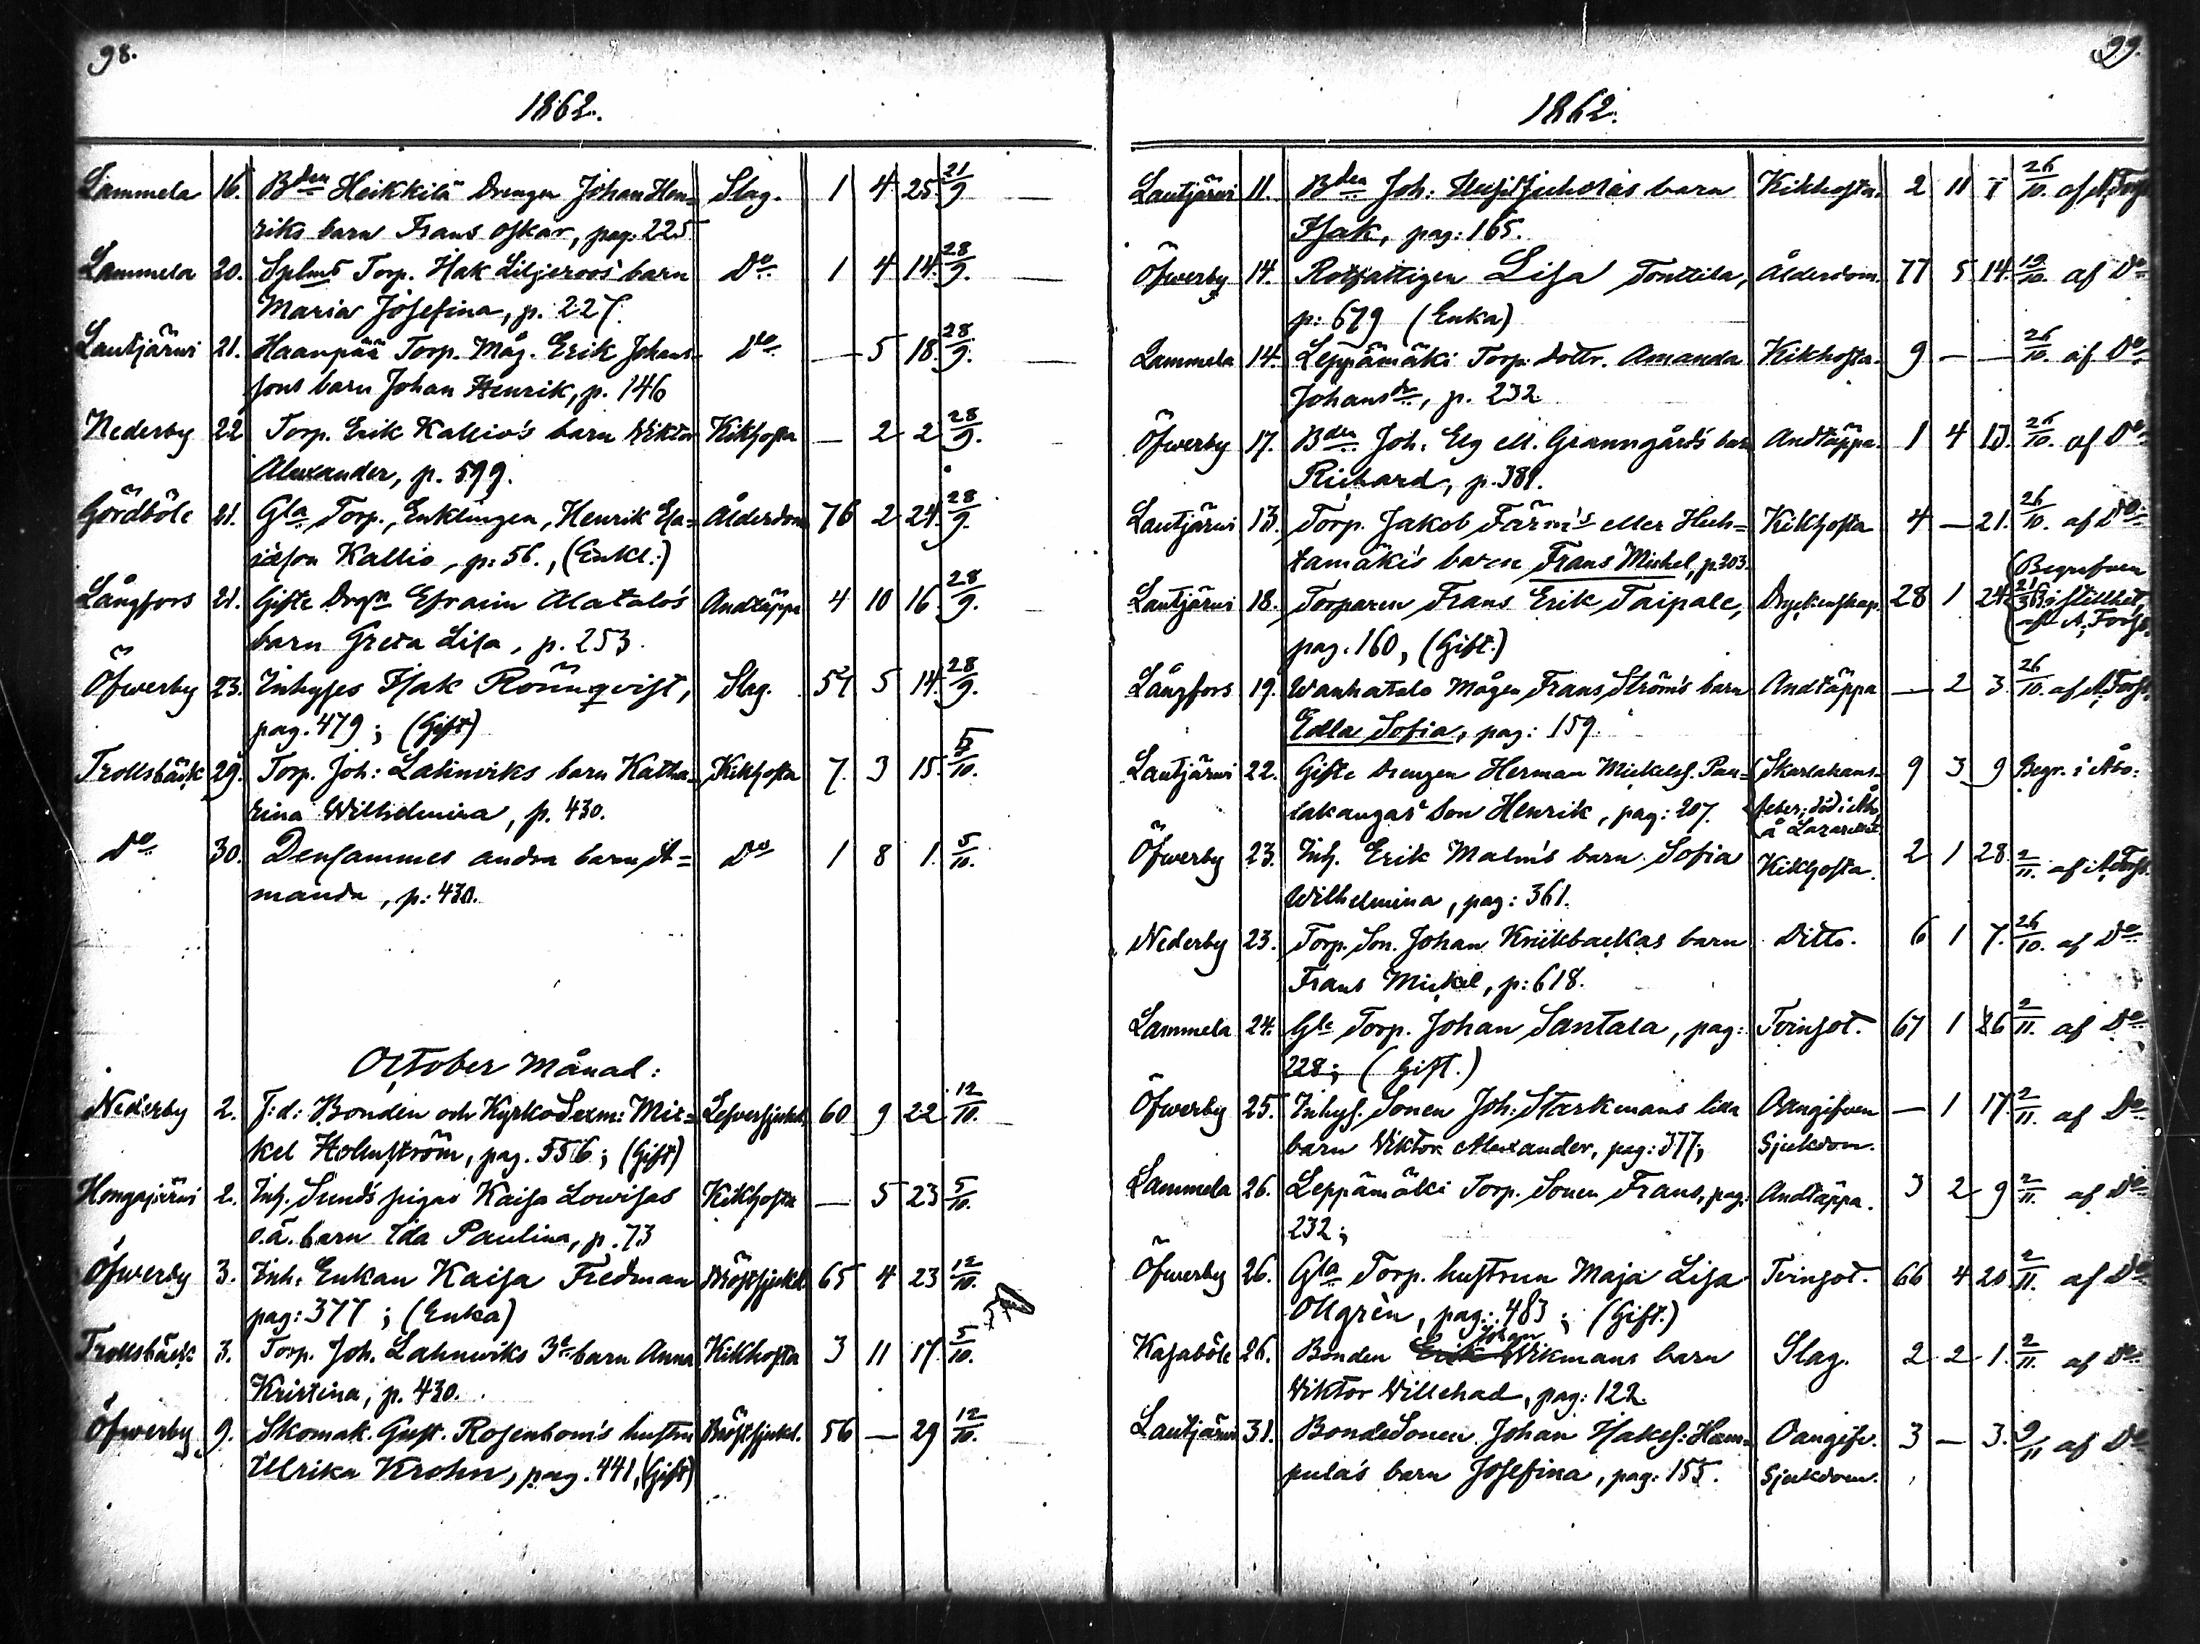 98.
1862.
Lammela 16. Bden Heikkilä Drengen Johan Hen= Slag. 1 4 25 21/9.
riks barn Frans Oskar, pag: 225
Lammela 20. Splmt Torp. Isak Liljeroos' barn Do 1 4 14. 28/9.
Maria Josefina, p. 227.
Lautjärwi 21. Haanpää Torp. Måg. Erik Johans= Do — 5 18. 28/9.
sons barn Johan Henrik, p. 146
Nederby 22 Torp. Erik Kallio's barn Wiktor Kikhosta — 2 2 28/9.
Alexander, p. 599.
Gördböle 21. Gla Torp., Enklingen, Henrik Esa= Ålderdom 76 2 24. 28/9.
iasson Kallio, p: 56., (Enkl:)
Långfors 21. Gifte Drgn Efraim Alatalo's Andtäppa 4 10 16. 28/9.
barn Greta Lisa, p. 253.
Öfwerby 23. Inhyses Isak Rönnqvist, Slag. 51 5 14. 28/9.
pag. 479; (Gift)
Trollsbäck 29. Torp. Joh: Lahnwiks barn Katha= Kikhosta 7. 3 15. 5/10.
rina Wilhelmina, p. 430.
Do 30. Densammes andra barn A= Do 1 8 1. 5/10.
manda, p: 430.
October Månad:
Nederby 2. F:d: Bonden och Kyrko Sexm: Mic= Lefversjukd. 60 9 22 12/10.
kel Holmström, pag. 556; (Gift)
Hongajärwi 2. Inh. Sund's pigas Kaisa Lowisas Kikhosta — 5 23 5/10.
o.ä. barn Ida Paulina, p. 73
Öfwerby 3. Inh: Enkan Kaisa Fredman Bröstsjukd. 65 4 23 12/10.
pag: 377; (Enka)
Trollsbäck 3. Torp. Joh. Lahnwiks 3e barn Anna Kikhosta 3 11 17. 5/10.
Kristina, p. 430.
Öfwerby 9. Skomak. Gust. Rosenbom's hustru Bröstsjukd. 56 — 29 12/10.
Ulrika Krohn, pag. 441, (Gift)
99.
1862.
Lautjärwi 11. Bden Joh: barn Kikhosta. 2 11 1 26/10. af A. Forss
Isak, pag: 165.
Öfwerby 14. Rotfattigen Lisa Tonttila, Ålderdom. 77 5 14. 19/10. af Do
p: 679 (Enka)
Lammela 14. Leppämäki Torp. dottr. Amanda Kikhosta. 9 — — 26/10. af Do
Johansdr, p. 232
Öfwerby 17. Bden Joh: Elg ell. Granngård's barn Andtäppa. 1 4 13. 26/10. af Do
Richard, p. 381.
Lautjärwi 13. Torp. Jakob Färm's eller Huh= Kikhosta 4 — 21. 26/10. af Do
tamäki's barn Frans Mickel, p. 203.
Lautjärwi 18. Torparen Frans Erik Taipale, Dryckenskap. 28 1 24. (Begrafven i stillhet, af A. Forss.
pag. 160, (Gift.)
Långfors 19. Wanhatalo Mågen Frans Ström's barn Andtäppa — 2 3. 26/10. af A. Forss.
Edla Sofia, pag: 159.
Lautjärwi 22. Gifte Drengen Herman Mickelss. Pau= Skarlakans= 9 3 9 Begr. i Åbo:
lakangas' Son Henrik, pag: 207. feber; död i Åbo
å Lazarettet
Öfwerby 23. Inh. Erik Malm's barn Sofia Kikhosta. 2 1 28. 2/11. af A. Forss.
Wilhelmina, pag: 361.
Nederby 23. Torp. Son. Johan Knikbackas barn Ditto. 6 1 7. 26/10. af Do
Frans Mickel, p: 618.
Lammela 24. Gle Torp. Johan Santala, pag: Tvinsot. 67 1 26 2/11. af Do
228; (Gift.)
Öfwerby 25. Inhys. Sonen Joh: Starkmans lilla Oangifven — 1 17. 2/11. af Do
barn Viktor Alexander, pag: 377; Sjukdom.
Lammela 26. Leppämäki Torp. Sonen Frans, pag: Andtäppa. 3 2 9 2/11. af Do
232;
Öfwerby 26. Gla Torp. hustrun Maja Lisa Tvinsot. 66 4 20 2/11. af Do
Ollgrèn, pag: 483; (Gift.)
Kasaböle 26. Bonden Erik Johan Wikmans barn Slag. 2 2 1. 2/11. af Do
Viktor Willehad, pag: 122.
Lautjärwi 31. BondeSonen Johan Isakss: Ham= Oangifv. 3 — 3. 9/11 af Do
pula's barn Josefina, pag: 155. Sjukdom.